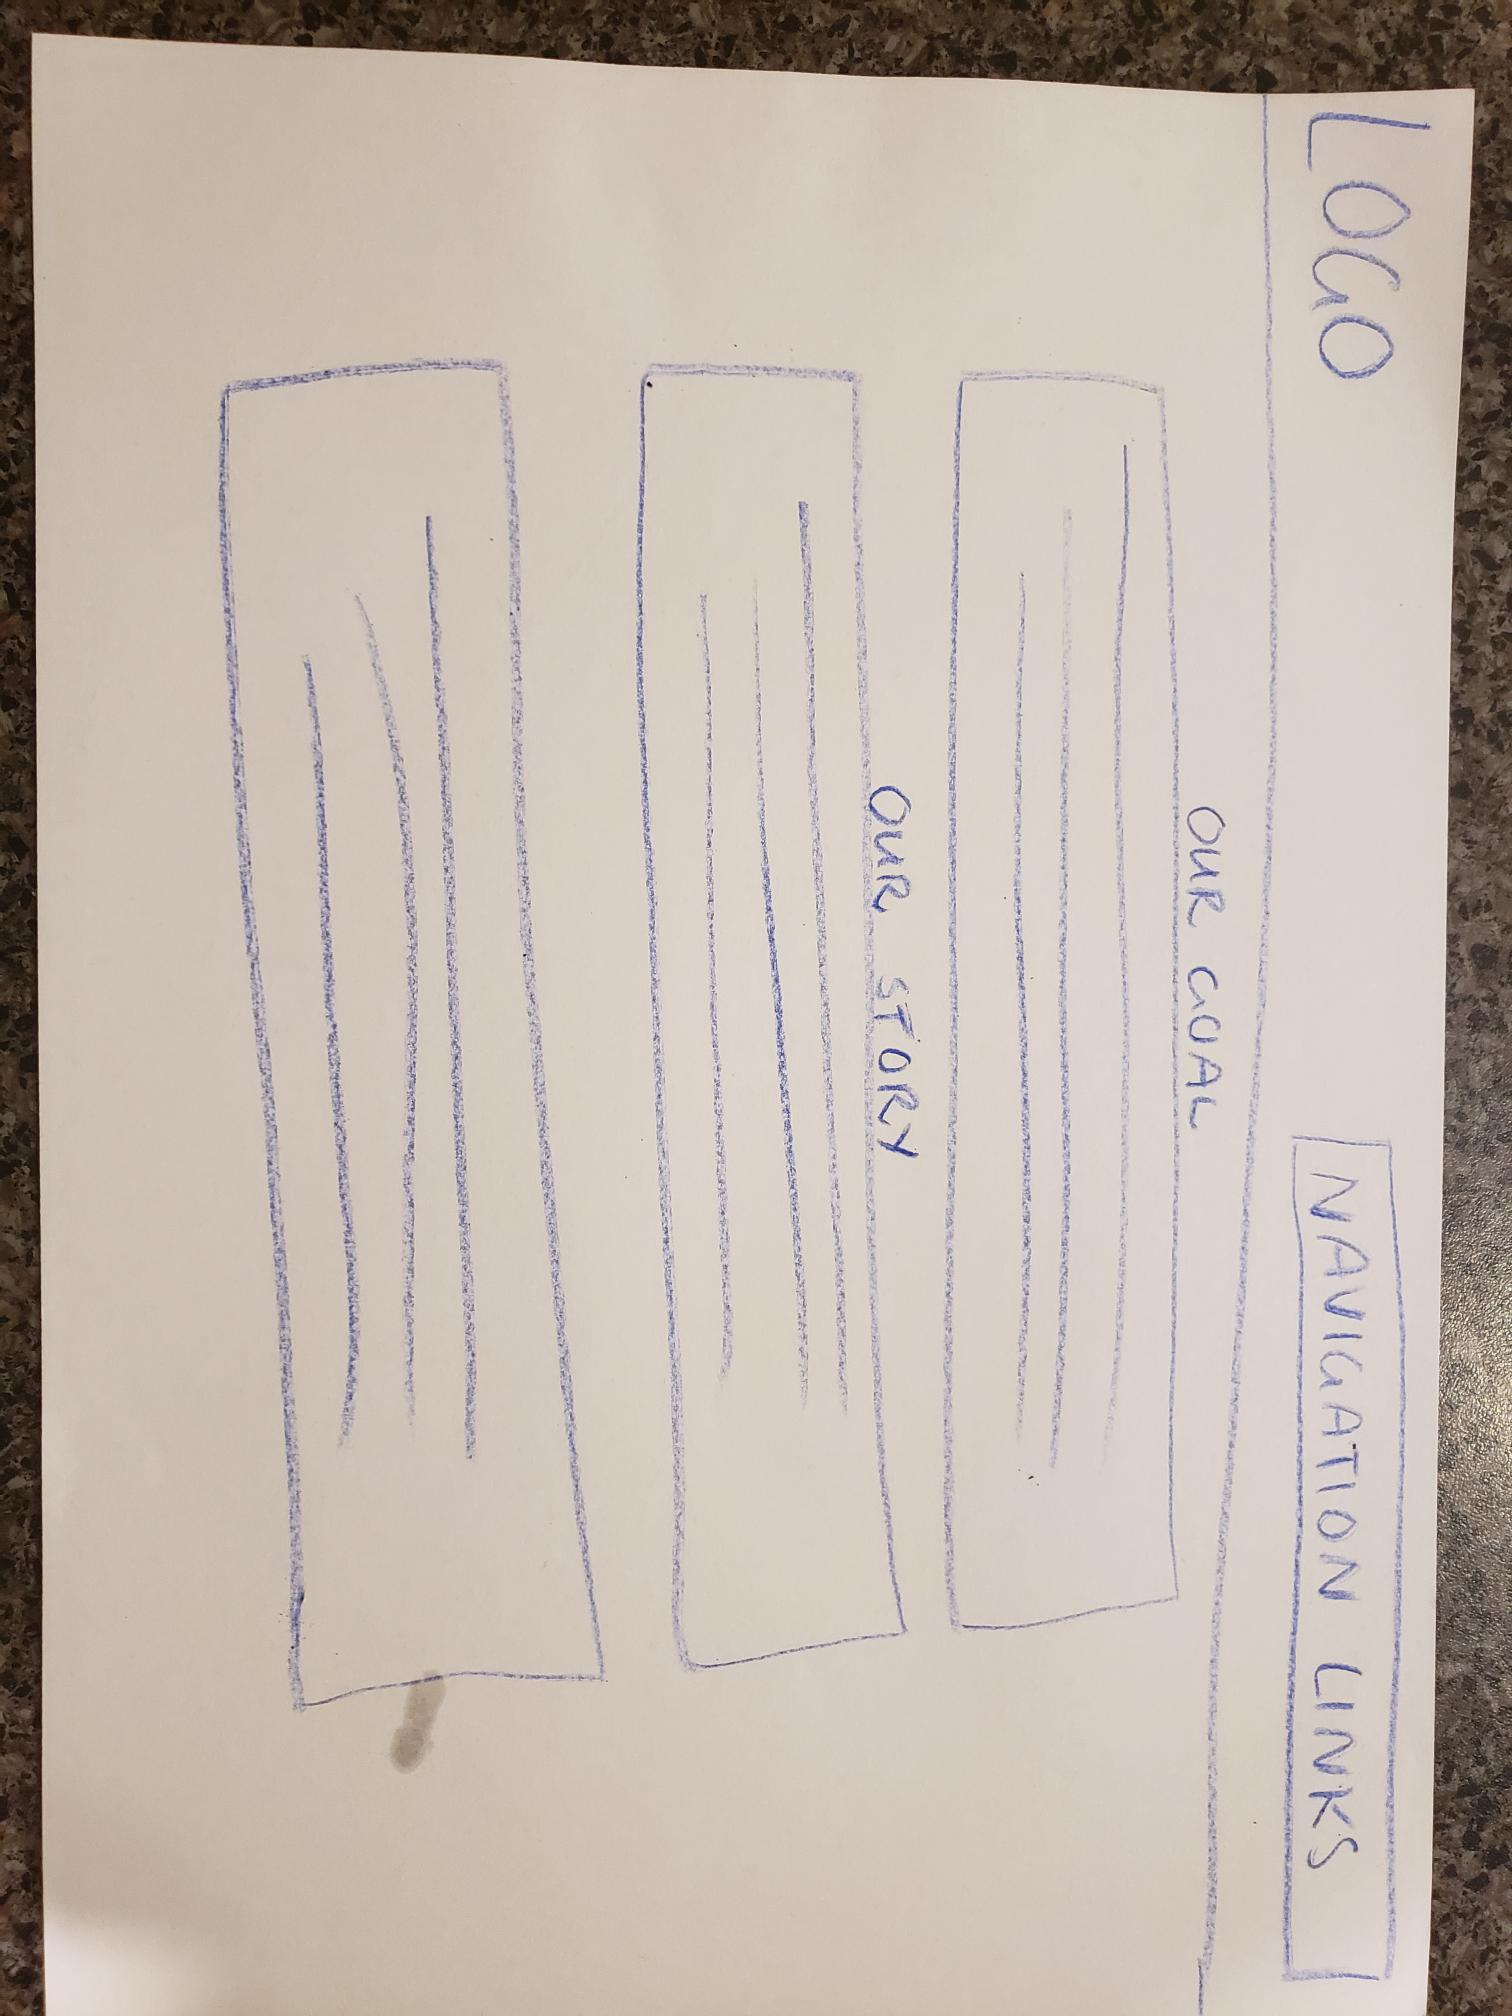 LOGO
NAVIGATION LINKS
OUR GOAL
OUR STORY